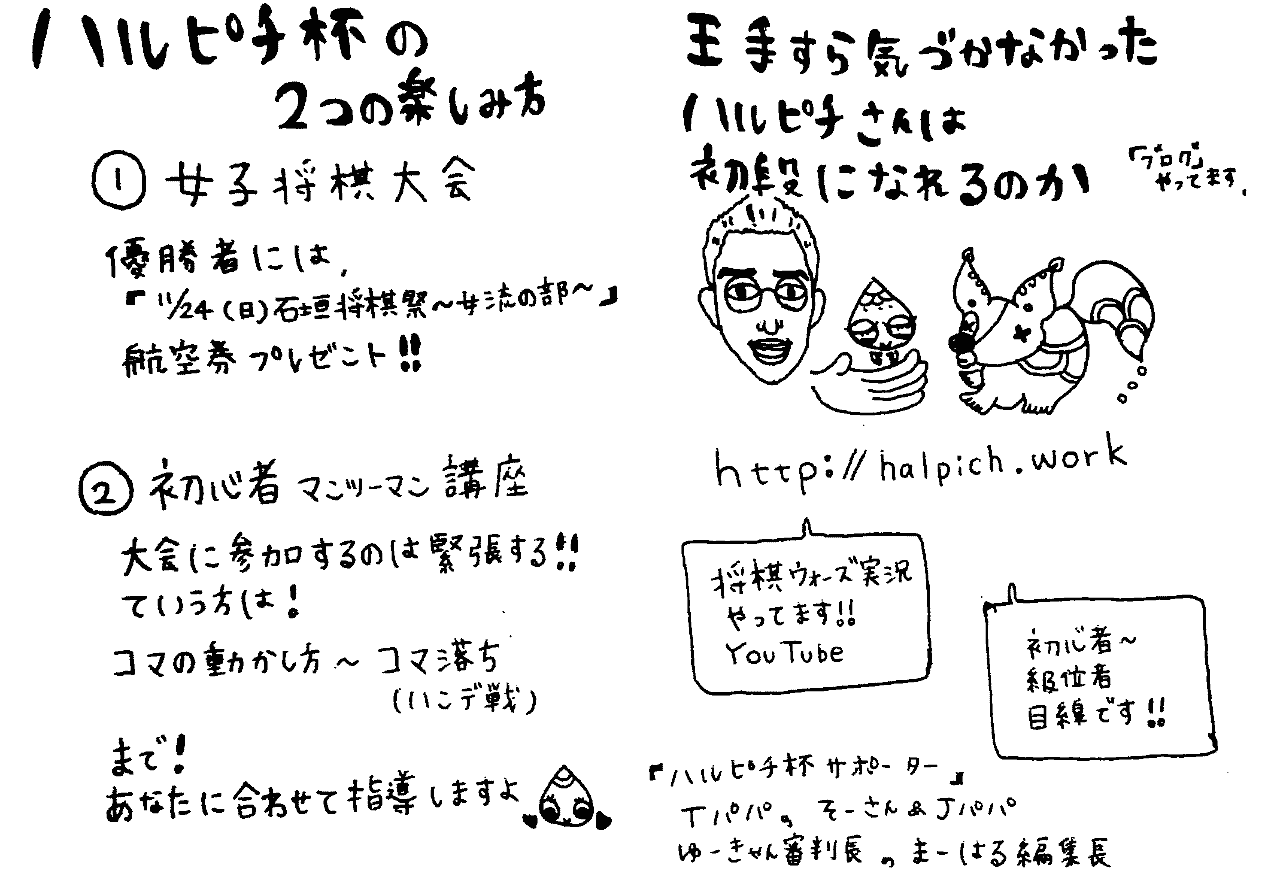 ハルピチ杯の
2つの楽しみ方
① 女子将棋大会
優勝者には、
『11/24(日)石垣将棋祭～女流の部～』
航空券プレゼント!!
② 初心者マンツーマン講座
大会に参加するのは緊張する!!
ていう方は!
コマの動かし方～コマ落ち
(ハンデ戦)
まで!
あなたに合わせて指導しますよ
王手すら気づかなかった
ハルピチさんは
初段になれるのか
「ブログ」
やってます。
http://halpich.work
将棋ウォーズ実況
やってます!!
YouTube
初心者～
級位者
目線です!!
『ハルピチ杯サポーター』
Tパパ、そーさん&Jパパ
ゆーきゃん審判長、まーはる編集長